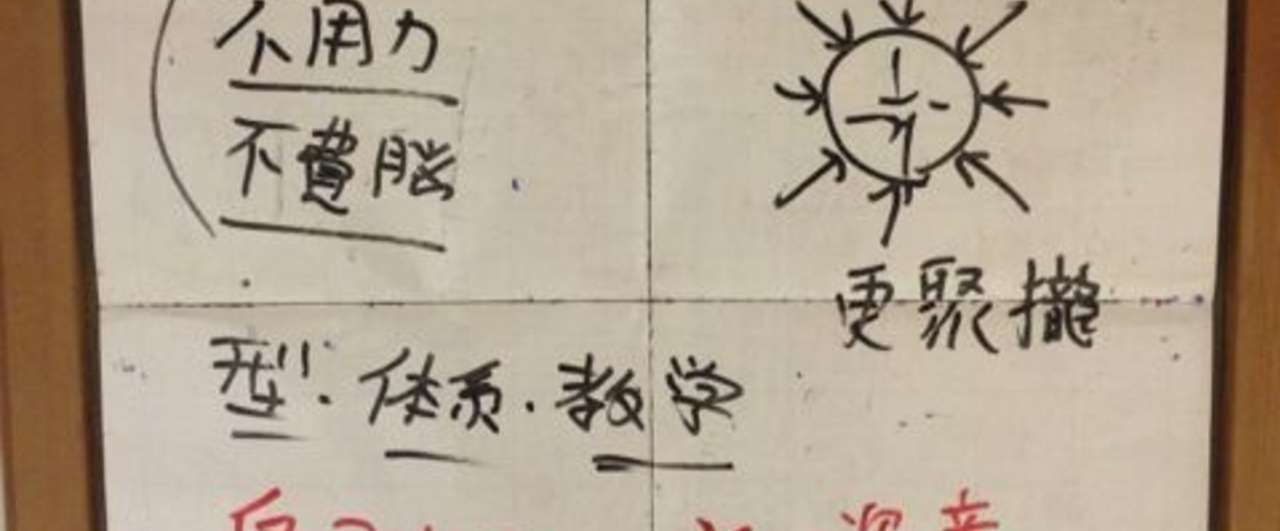 不用力
不費脳
更聚攏
型・体质・教学